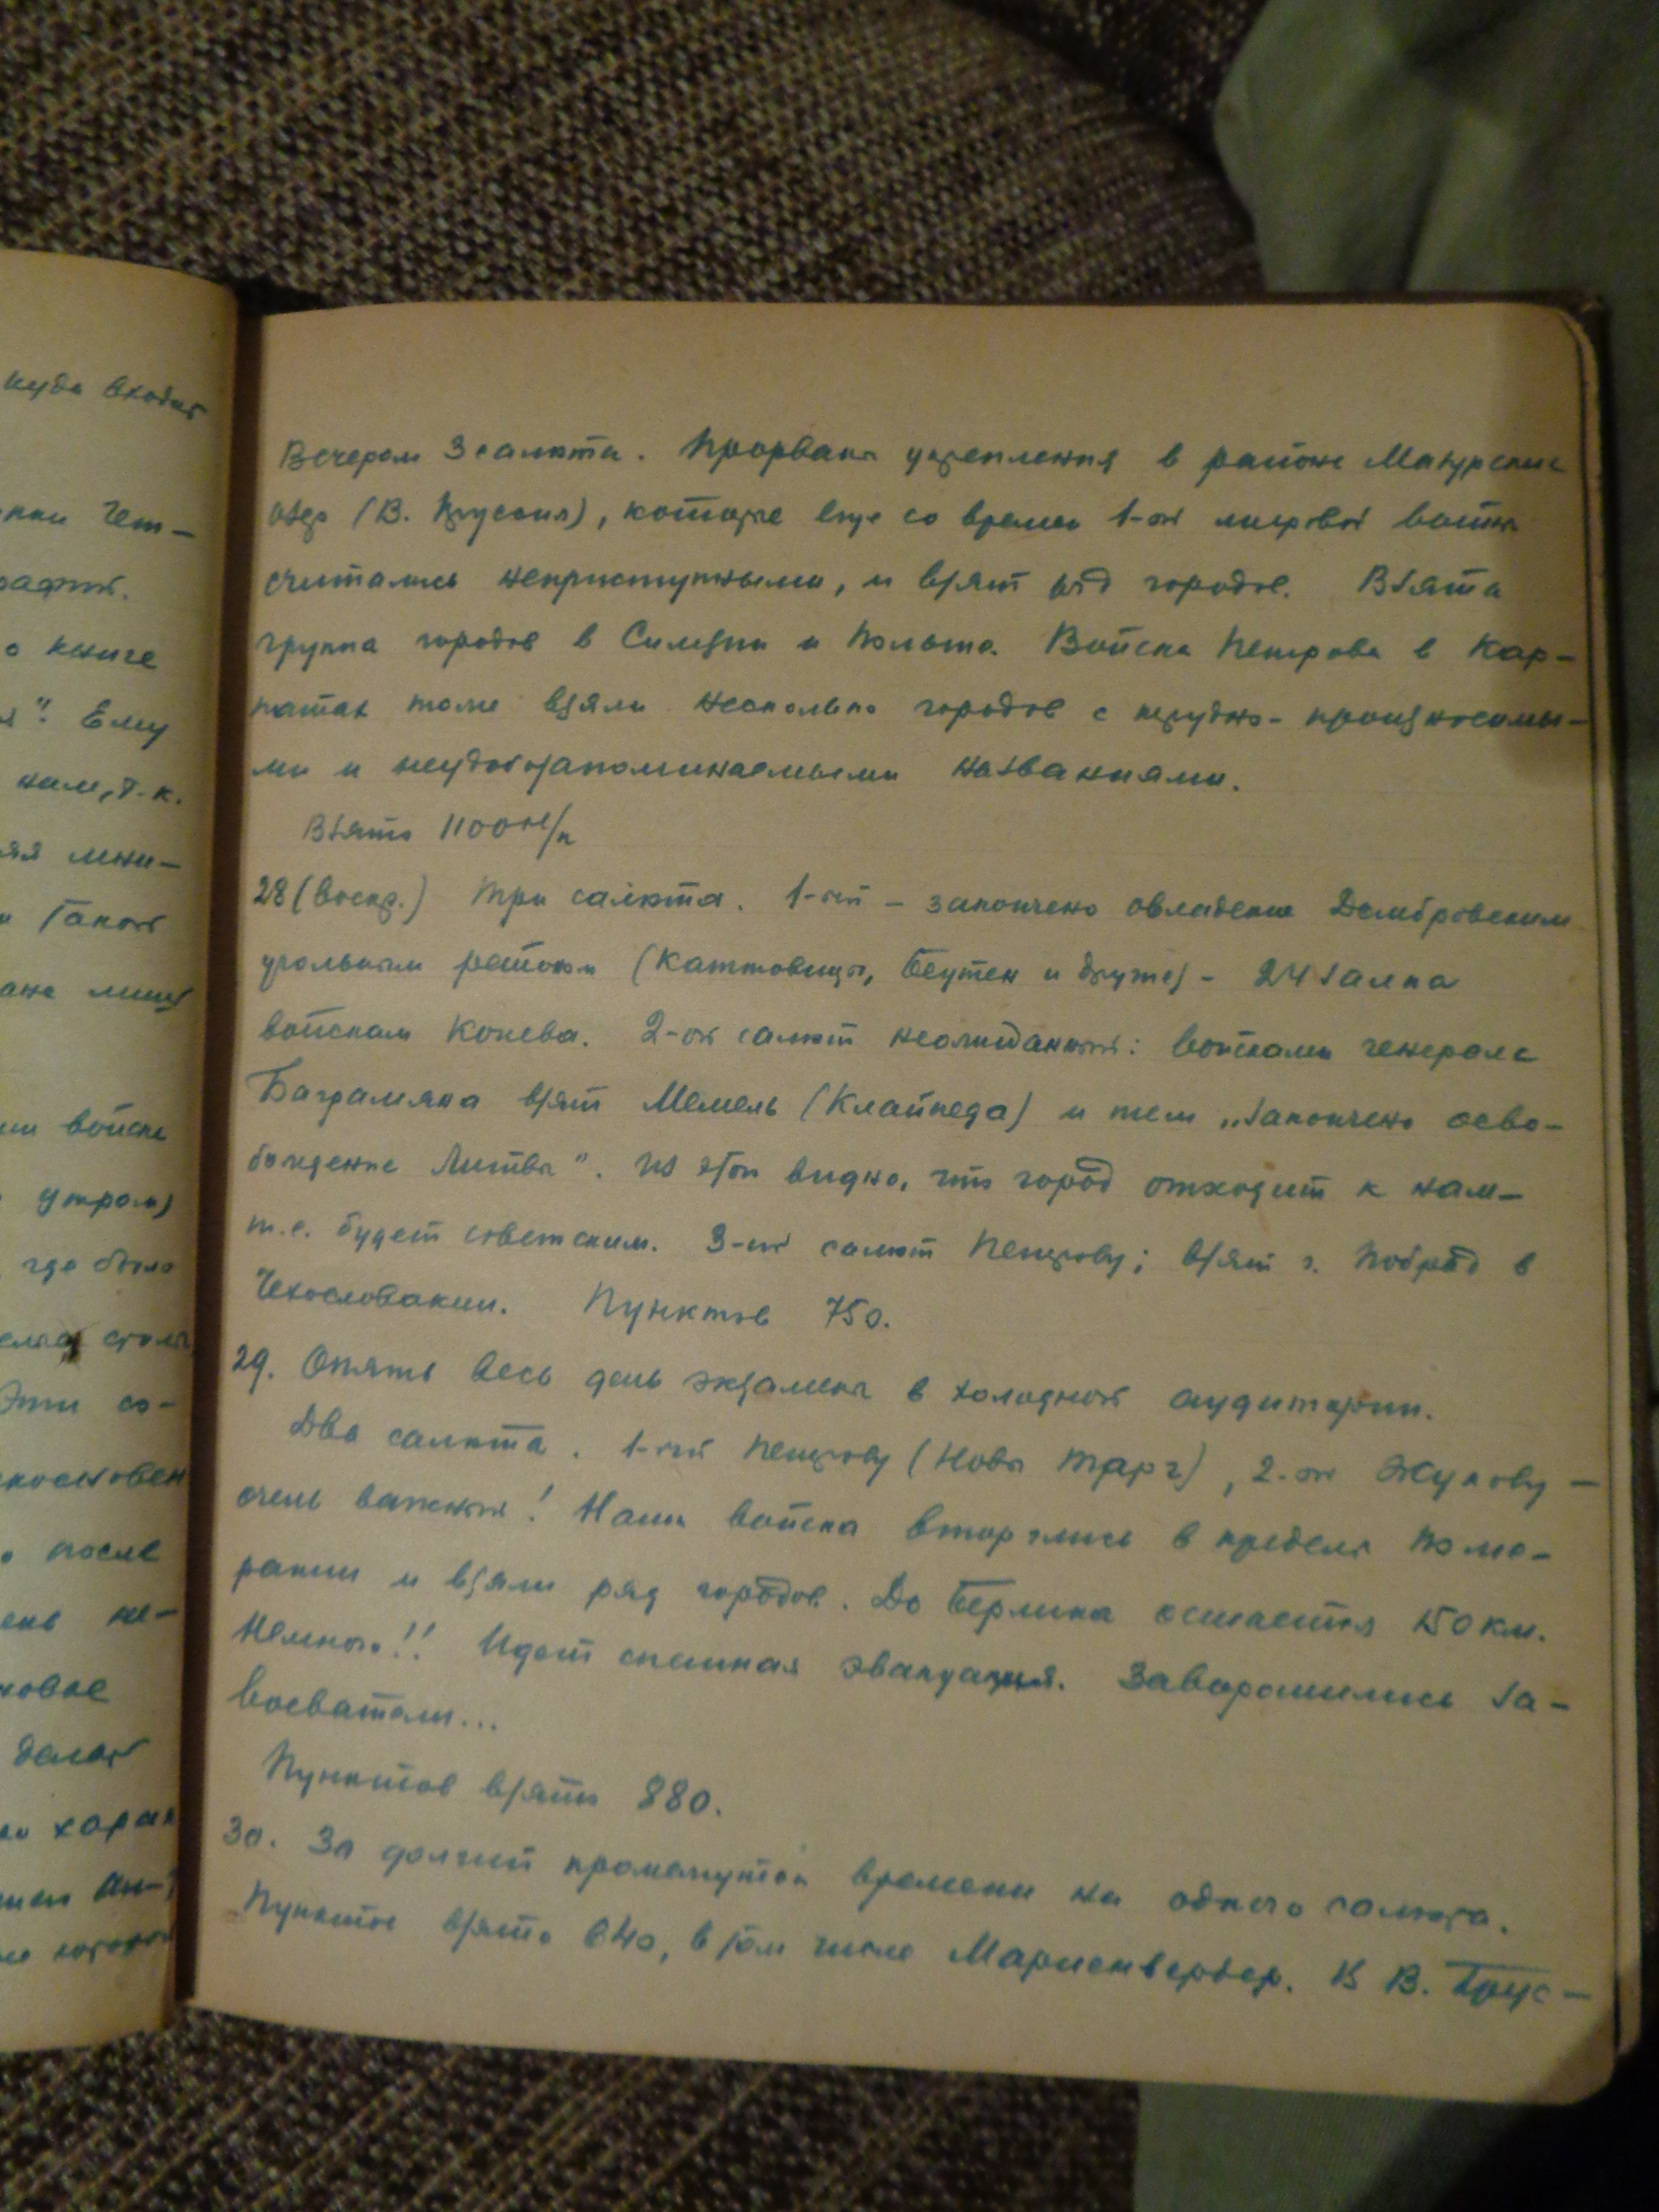 куда входит
Чет-
о книге
". Ему
ним, т.к.
утром)
где было
Эти со-
после
не-
Вечером 3 салюта. Прорваны укрепления в районе Мазурских
озер (В. Пруссия), которые еще со времен 1-ой мировой войны
считались неприступными, и взят ряд городов. Взята
группа городов в Силезии и Польше. Войска Петрова в Кар-
патах тоже взяли несколько городов с трудно-произносимы-
ми и неудобозапоминаемыми названиями.
Взято 1100 н/п
28 (воскр.) Три салюта. 1-ый - закончено овладение Домбровским
угольным районом (Катовицы, Беутен и другие) - 24 залпа
войскам Конева. 2-ой салют неожиданный: войсками генерала
Баграмяна взят Мемель (Клайпеда) и тем „закончено осво-
бождение Литвы". Из этого видно, что город отходит к нам-
т.е. будет советским. 3-ий салют Петрову; взят г. Попрад в
Чехословакии. Пунктов 750.
29. Опять весь день экзамены в холодной аудитории.
Два салюта. 1-ый Петрову (Новы Тарг), 2-ой Жукову -
очень важный! Наши войска вторглись в пределы Поме-
рании и взяли ряд городов. До Берлина остается 150 км.
Немного!! Идет спешная эвакуация. Заворошились за-
воеватели...
Пунктов взято 880.
30. За долгий промежуток времени ни одного салюта.
Пунктов взято 640, в том числе Мариенвердер. В В. Прус-